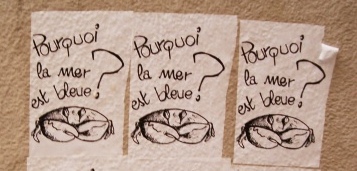 Pourquoi
la mer
est bleue ?
Pourquoi
la mer
est bleue ?
Pourquoi
la mer
est bleue ?